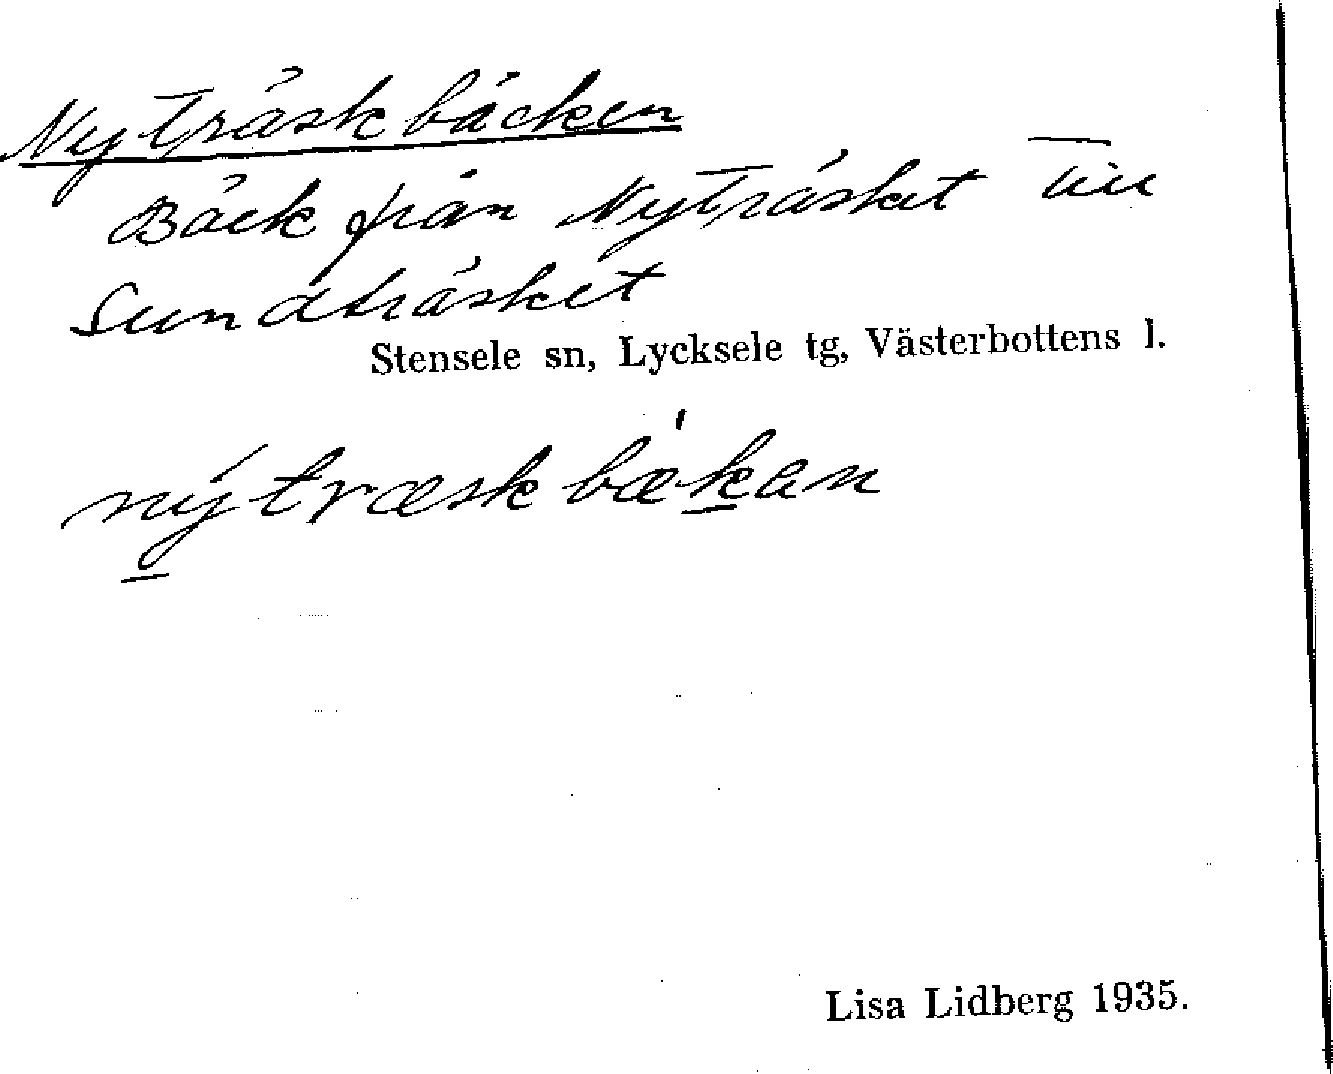 Nyträskbäcken
Bäck från Nyträsket till
Sundträsket
Stensele sn, Lycksele tg, Västerbottens l.
nýtræskbæ'kan
Lisa Lidberg 1935.